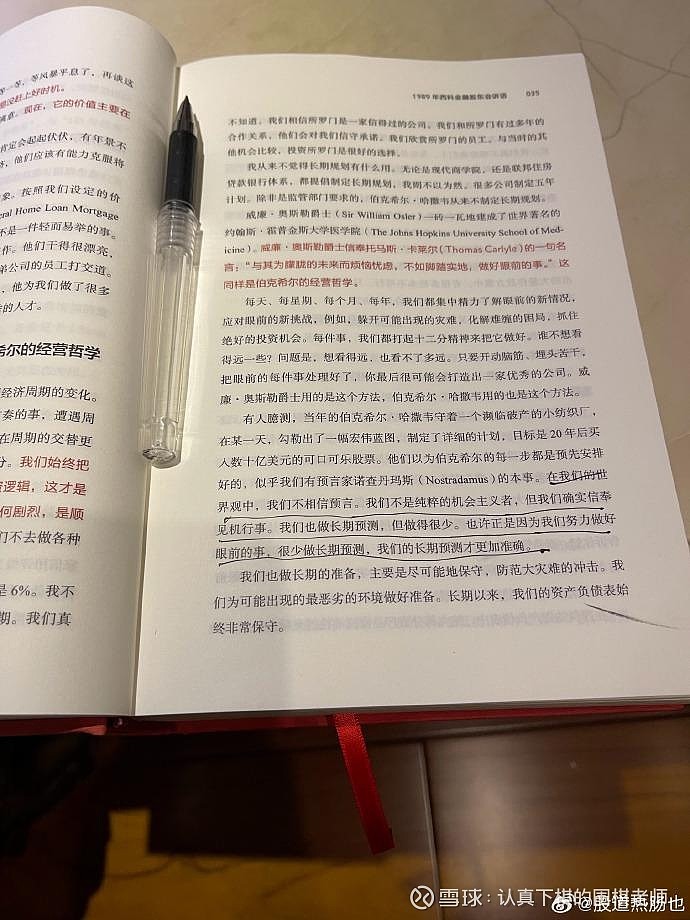 等一等，等风暴平息了，再谈这
是没赶上好时机。
满意。现在，它的价值主要在
肯定会起起伏伏，有年景不
济，他们应该有能力克服将
象。按照我们设定的价
eral Home Loan Mortgage
不是一件轻而易举的事。
作。他们干得很漂亮，
弟公司的员工打交道。
，他为我们做了很多
的人才。
希尔的经营哲学
经济周期的变化。
奏的事，遭遇周
在周期的交替更
分。我们始终把
资逻辑，这才是
何剧烈，是顺
们不去做各种
是 6%。我不
期。我们真
1989 年西科金融股东会讲话 035
不知道，我们相信所罗门是一家信得过的公司。我们和所罗门有过多年的
合作关系，他们会对我们信守承诺。我们欣赏所罗门的员工。与当时的其
他机会比较，投资所罗门是很好的选择。
我从来不觉得长期规划有什么用。无论是现代商学院，还是联邦住房
贷款银行体系，都提倡制定长期规划，我则不以为然。很多公司制定五年
计划。除非是监管部门要求的，伯克希尔·哈撒韦从来不制定长期规划。
威廉·奥斯勒爵士（Sir William Osler）一砖一瓦地建成了世界著名的
约翰斯·霍普金斯大学医学院（The Johns Hopkins University School of Med-
icine）。威廉·奥斯勒爵士信奉托马斯·卡莱尔（Thomas Carlyle）的一句名
言：“与其为朦胧的未来而烦恼忧虑，不如脚踏实地，做好眼前的事。”这
同样是伯克希尔的经营哲学。
每天、每星期、每个月、每年，我们都集中精力了解眼前的新情况，
应对眼前的新挑战，例如，躲开可能出现的灾难，化解难缠的困局，抓住
绝好的投资机会。每件事，我们都打起十二分精神来把它做好。谁不想看
得远一些？问题是，想看得远，也看不了多远。只要开动脑筋、埋头苦干，
把眼前的每件事处理好了，你最后很可能会打造出一家优秀的公司。威
廉·奥斯勒爵士用的是这个方法，伯克希尔·哈撒韦用的也是这个方法。
有人臆测，当年的伯克希尔·哈撒韦守着一个濒临破产的小纺织厂，
在某一天，勾勒出了一幅宏伟蓝图，制定了详细的计划，目标是 20 年后买
入数十亿美元的可口可乐股票。他们以为伯克希尔的每一步都是预先安排
好的，似乎我们有预言家诺查丹玛斯（Nostradamus）的本事。在我们的世
界观中，我们不相信预言。我们不是纯粹的机会主义者，但我们确实信奉
见机行事。我们也做长期预测，但做得很少。也许正是因为我们努力做好
眼前的事，很少做长期预测，我们的长期预测才更加准确。
我们也做长期的准备，主要是尽可能地保守，防范大灾难的冲击。我
们为可能出现的最恶劣的环境做好准备。长期以来，我们的资产负债表始
终非常保守。
雪球：认真下棋的围棋老师
@股道热肠也